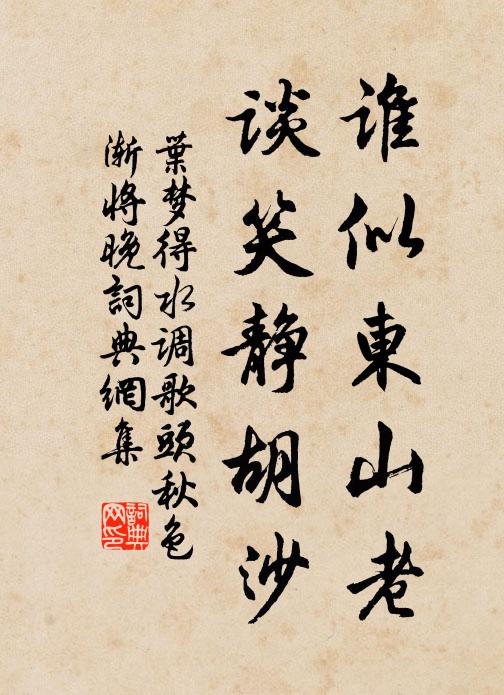 誰似東山老
談笑静胡沙
葉梦得水调歌頭秋色
渐將晚詞典網集
詞典
网印